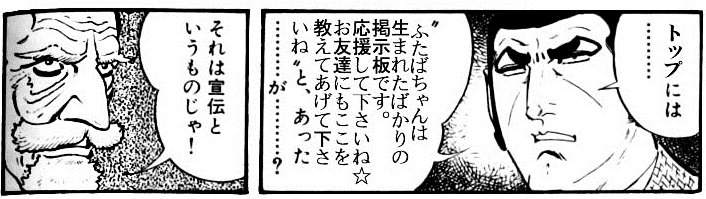 トップには
………
〝ふたばちゃんは
生まれたばかりの
掲示板です。
応援して下さいね☆
お友達にもここを
教えてあげて下さ
いね〟と、あった
…………が………?
それは宣伝と
いうものじゃ!